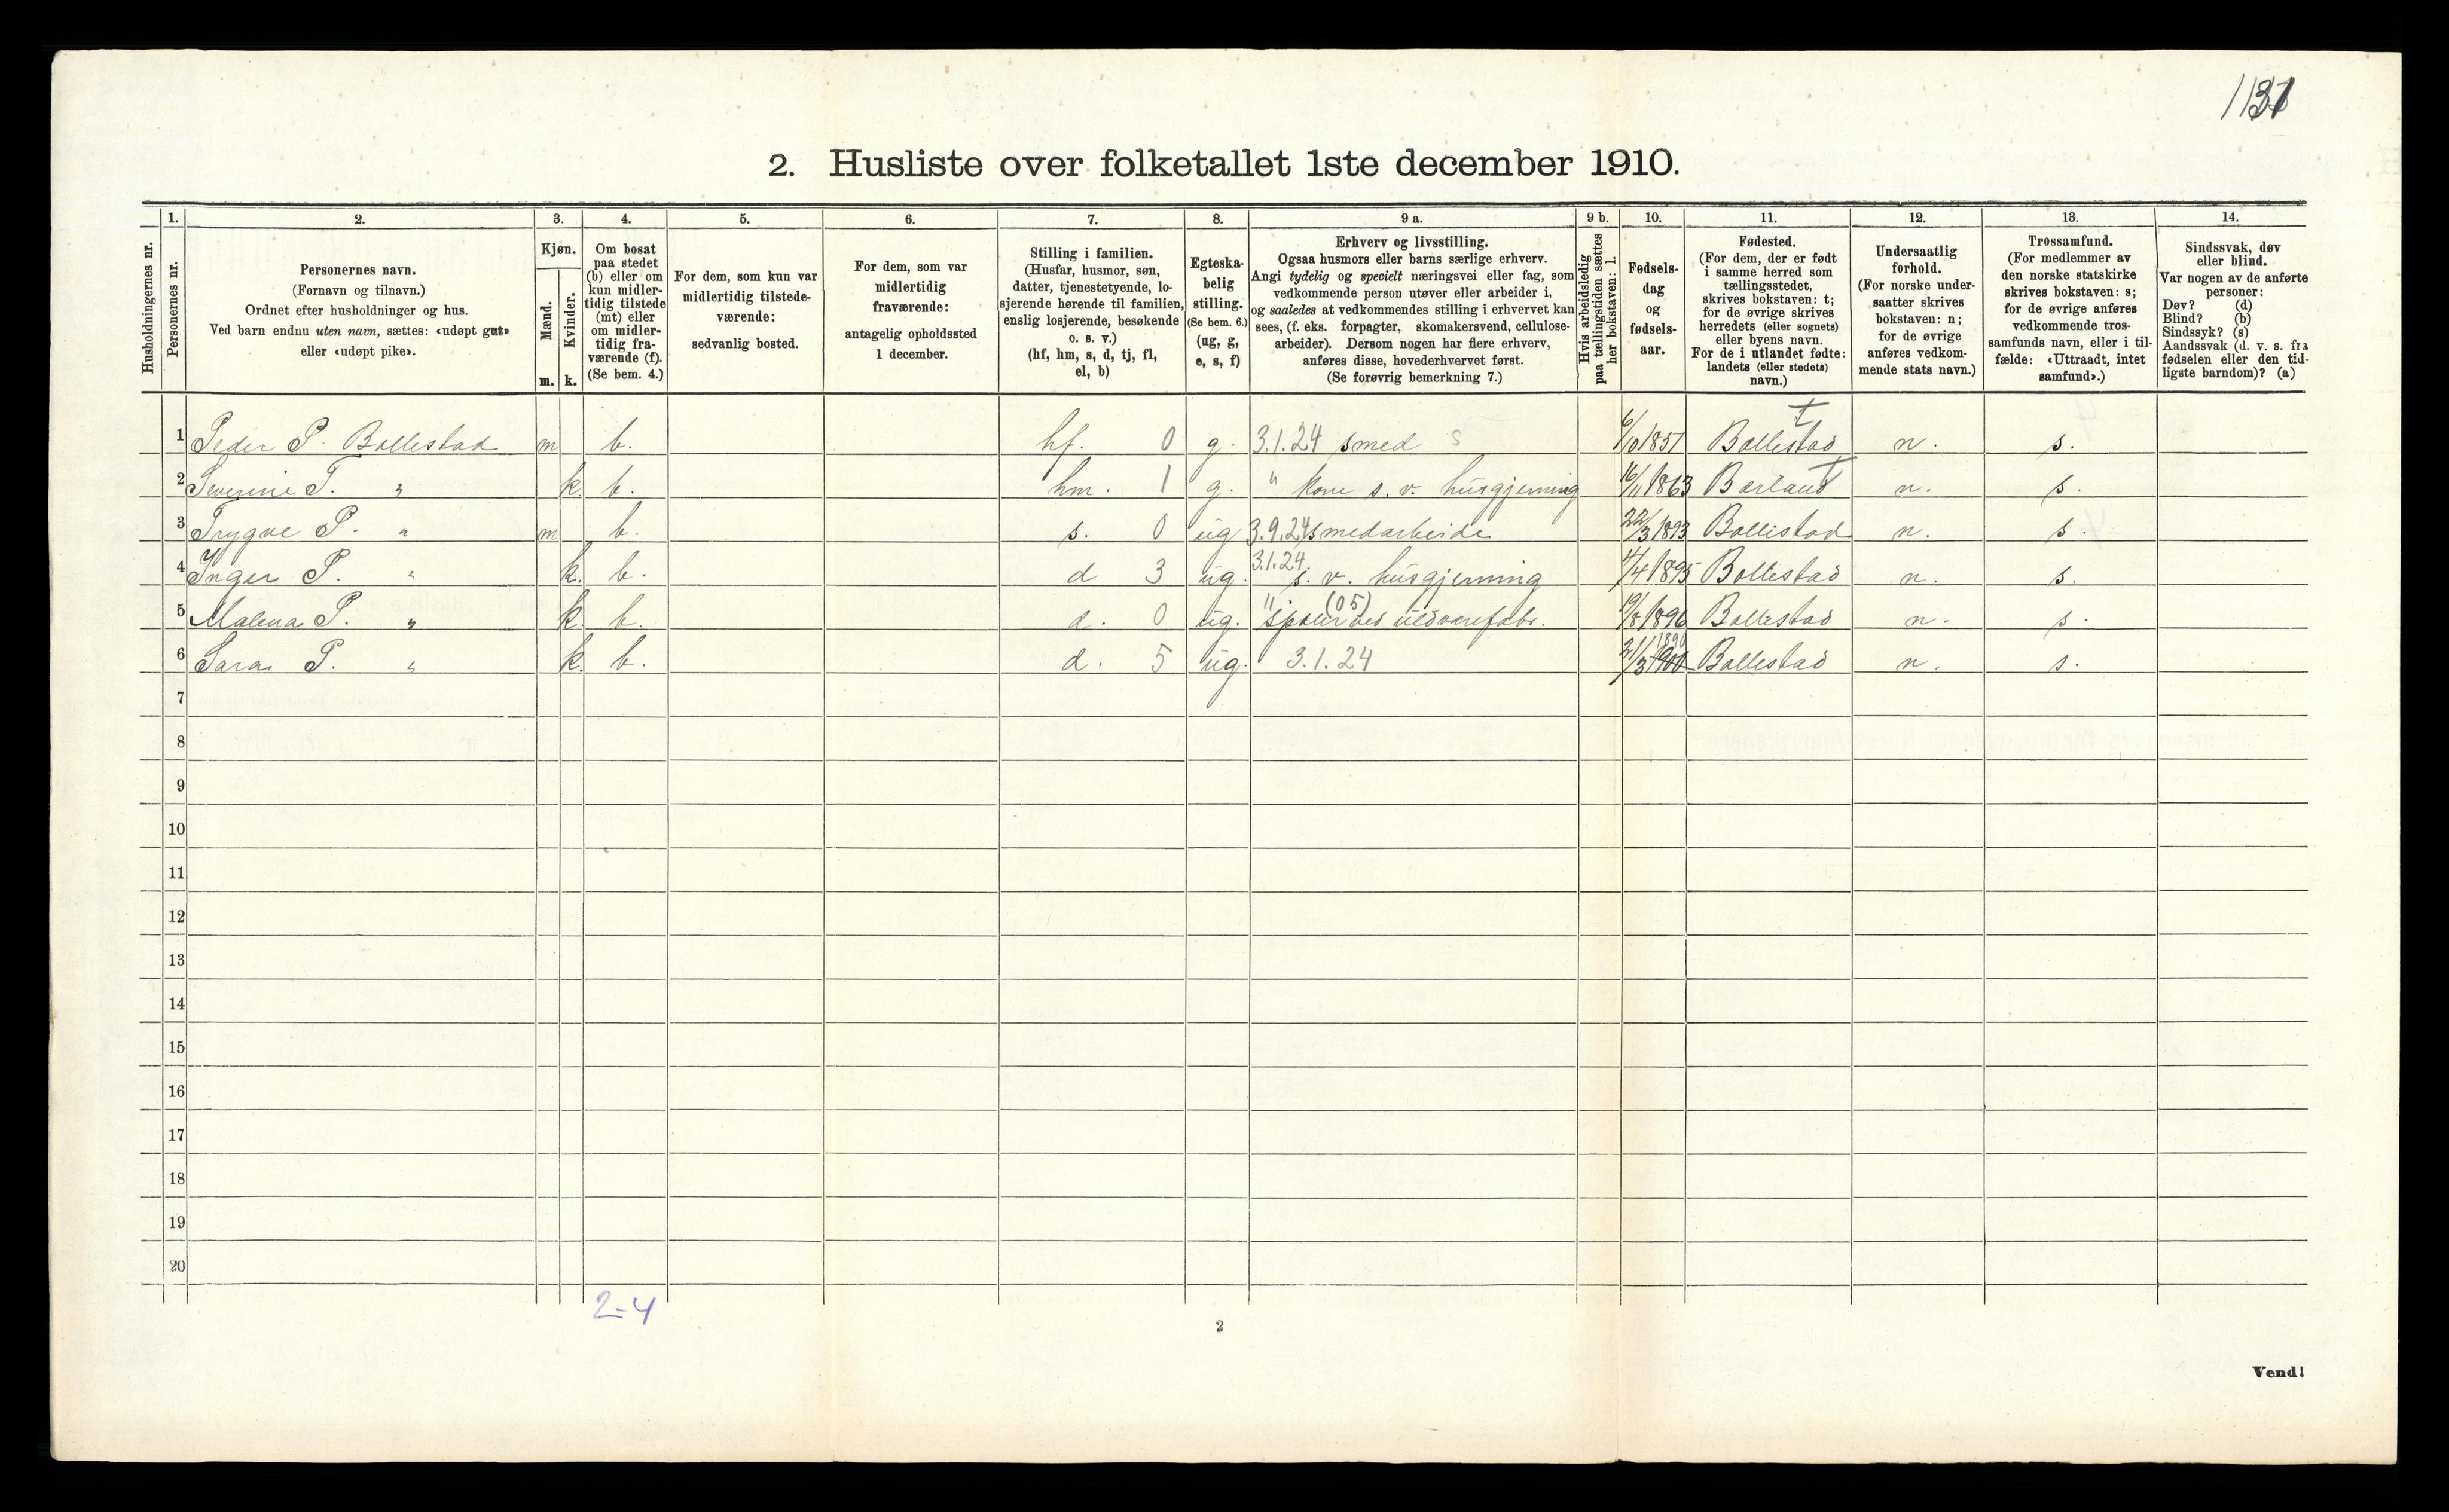 1131
2. Husliste over folketallet 1ste december 1910.
Husholdningernes nr.
1. Personernes nr.
2. Personernes navn.
(Fornavn og tilnavn.)
Ordnet efter husholdninger og hus.
Ved barn endnu uten navn, sættes: «udøpt gut»
eller «udøpt pike».
3. Kjøn.
Mænd. Kvinder.
m. k.
4. Om bosat
paa stedet
(b) eller om
kun midler-
tidig tilstede
(mt) eller
om midler-
tidig fra-
værende (f).
(Se bem. 4.)
5. For dem, som kun var
midlertidig tilstede-
værende:
sedvanlig bosted.
6. For dem, som var
midlertidig
fraværende:
antagelig opholdssted
1 december.
7. Stilling i familien.
(Husfar, husmor, søn,
datter, tjenestetyende, lo-
sjerende hørende til familien,
enslig losjerende, besøkende
o. s. v.)
(hf, hm, s, d, tj, fl,
el, b)
8. Egteska-
belig
stilling.
(Se bem. 6.)
(ug, g,
e, s, f)
9 a. Erhverv og livsstilling.
Ogsaa husmors eller barns særlige erhverv.
Angi tydelig og specielt næringsvei eller fag, som
vedkommende person utøver eller arbeider i,
og saaledes at vedkommendes stilling i erhvervet kan
sees, (f. eks. forpagter, skomakersvend, cellulose-
arbeider). Dersom nogen har flere erhverv,
anføres disse, hovederhvervet først.
(Se forøvrig bemerkning 7.)
9 b. Hvis arbeidsledig
paa tællingstiden sættes
her bokstaven: l.
10. Fødsels-
dag
og
fødsels-
aar.
11. Fødested.
(For dem, der er født
i samme herred som
tællingsstedet,
skrives bokstaven: t;
for de øvrige skrives
herredets (eller sognets)
eller byens navn.
For de i utlandet fødte:
landets (eller stedets)
navn.)
12. Undersaatlig
forhold.
(For norske under-
saatter skrives
bokstaven: n;
for de øvrige
anføres vedkom-
mende stats navn.)
13. Trossamfund.
(For medlemmer av
den norske statskirke
skrives bokstaven: s;
for de øvrige anføres
vedkommende tros-
samfunds navn, eller i til-
fælde: «Uttraadt, intet
samfund».)
14. Sindssvak, døv
eller blind.
Var nogen av de anførte
personer:
Døv? (d)
Blind? (b)
Sindssyk? (s)
Aandssvak (d. v. s. fra
fødselen eller den tid-
ligste barndom)? (a)
t
1 Peder P. Bollestad m b. hf. 0 g. 3.1.24 smed s 6/10 1857 Bollestad n. s.
2 Severine T. " k. b. hm. 1 g. " kone s. v. husgjerning 16/11 1863 Borland t n. s.
3 Trygve P. " m b. s. 0 ug 3.9.24 smedarbeide 22/3 1893 Bollestad n. s.
4 Inger P. " k. b. d 3 ug. 3.1.24 s. v. husgjerning 4/4 1895 Bollestad n. s.
5 Malena P. " k. b. d. 0 ug. " (05) spoler ved uldvarefabr. 19/8 1896 Bollestad n. s.
6 Sara P. " k. b. d. 5 ug. 3.1.24 21/3 1900 1890 Bollestad n. s.
7
8
9
10
11
12
13
14
15
16
17
18
19
20
2-4
2
Vend!